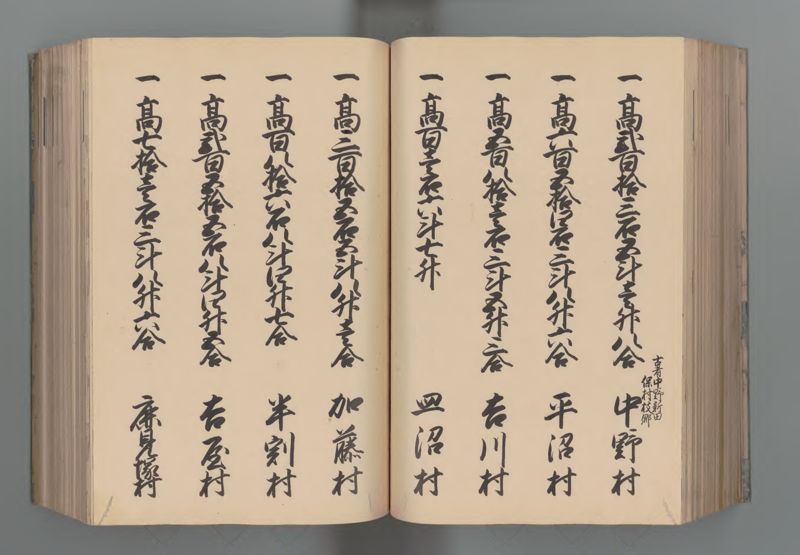 一 高弐百拾三石五斗壱升八合 中野村
古者中野新田
保村枝郷
一 高六百五拾四石三斗八升六合 平沼村
一 高五百八拾壱石三斗五升二合 吉川村
一 高百壱石六斗七升 皿沼村
一 高三百拾五石五斗八升壱合 加藤村
一 高百八拾六石八斗四升七合 半割村
一 高弐百五拾五石八斗四升五合 吉屋村
一 高七拾壱石三斗八升六合 村